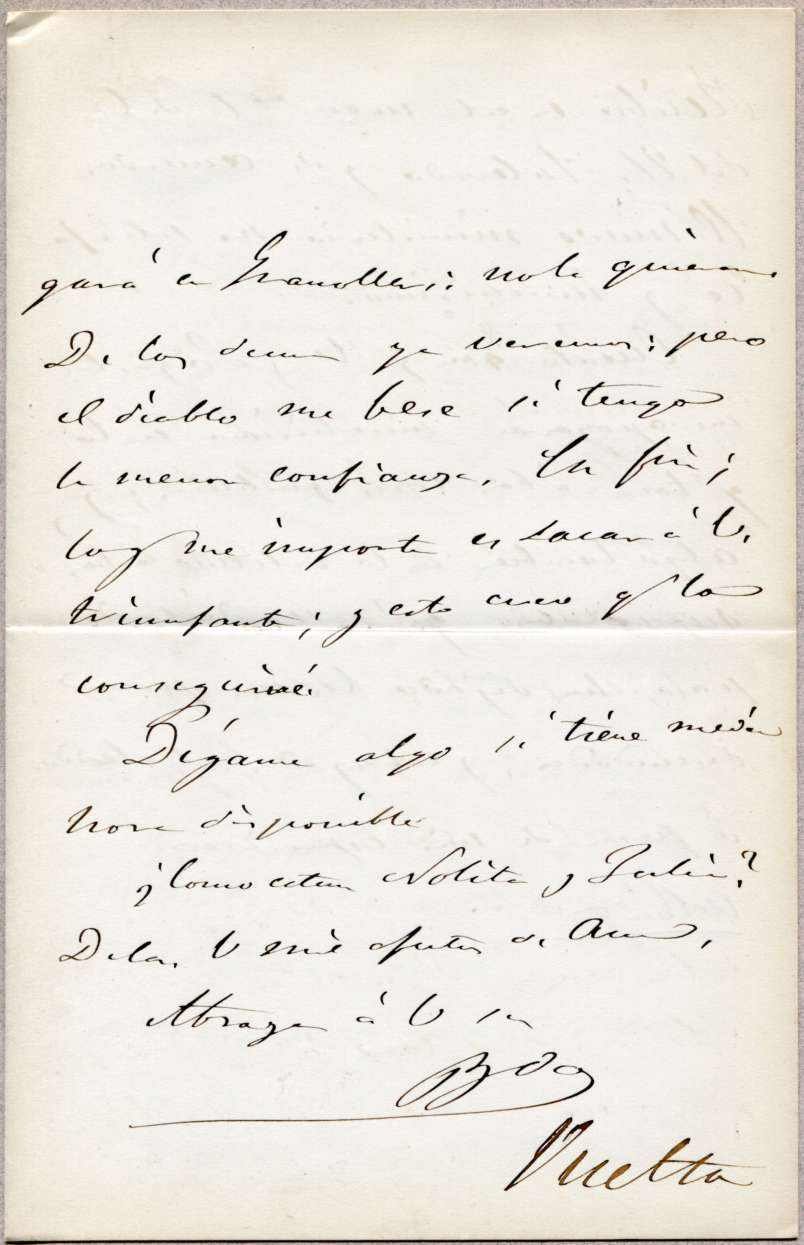 gará en Granollers: no le quieren.
De los demas ya veremos: pero
el diablo me lleve si tengo
la menor confianza. En fin;
loq me importa es sacar á V.
triunfante; y esto creo q' lo
conseguiré.
Dígame algo si tiene media
hora disponible
¿Como estan Lolita y Julia?
Delas V mil afectos de
Abraza á V su
Vuelta